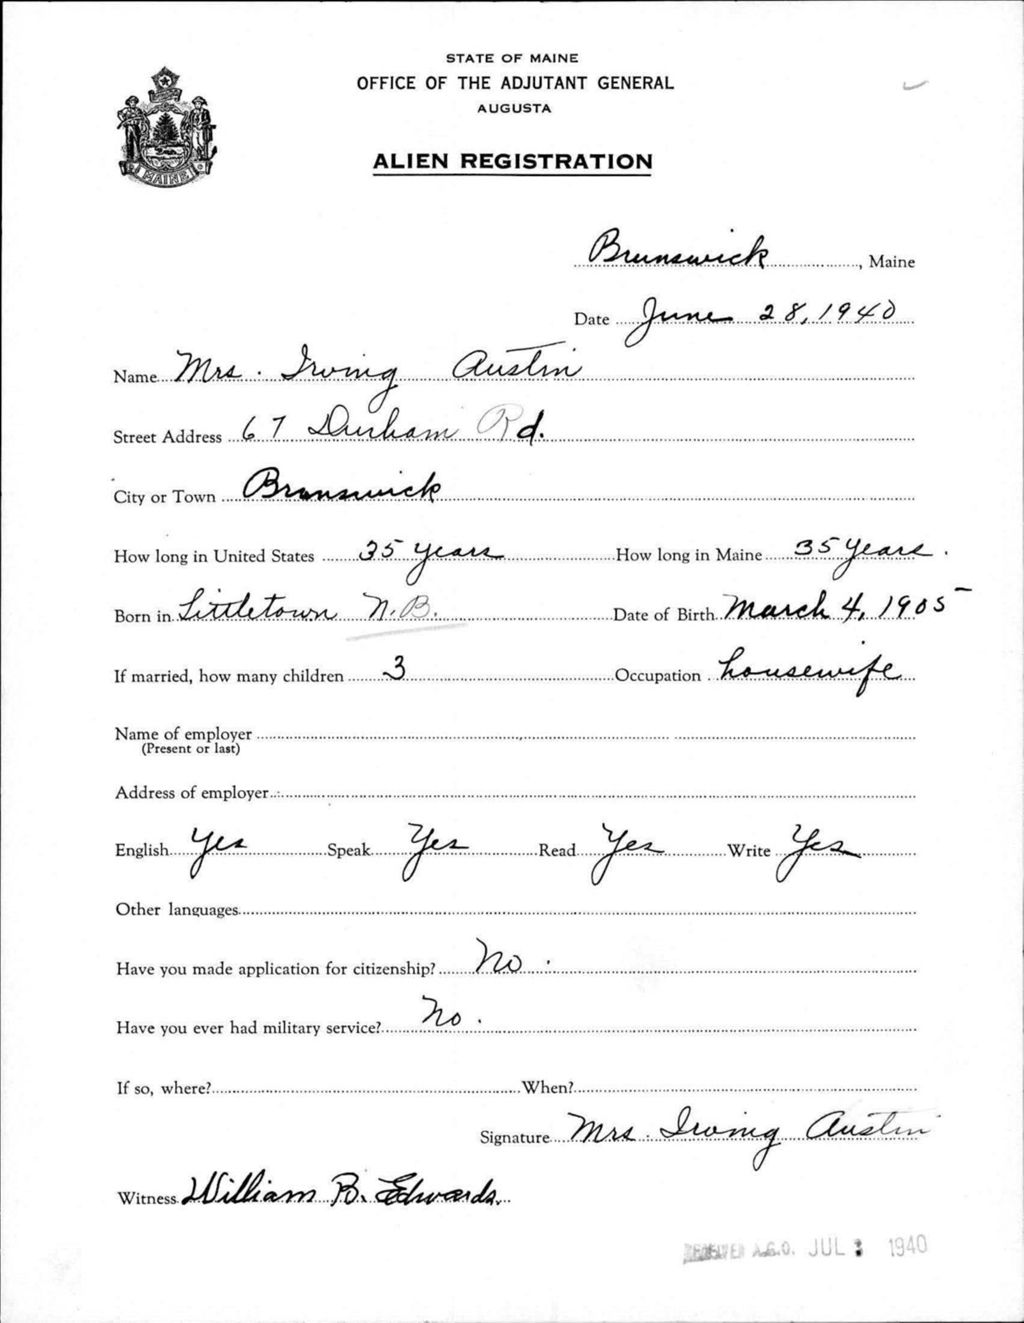 STATE OF MAINE
OFFICE OF THE ADJUTANT GENERAL
AUGUSTA
ALIEN REGISTRATION
MAINE
Brunswick, Maine
Date June 28, 1940
Name Mrs. Irving Austin
Street Address 67 Durham Rd.
City or Town Brunswick
How long in United States 35 years How long in Maine 35 years.
Born in Littletown N.B. Date of Birth March 4, 1905
If married, how many children 3 Occupation housewife
Name of employer
(Present or last)
Address of employer
English Yes Speak Yes Read Yes Write Yes
Other languages
Have you made application for citizenship? No.
Have you ever had military service? No.
If so, where? When?
Signature Mrs. Irving Austin
Witness William B. Edwards.
RECEIVED A.G.O. JUL 1940